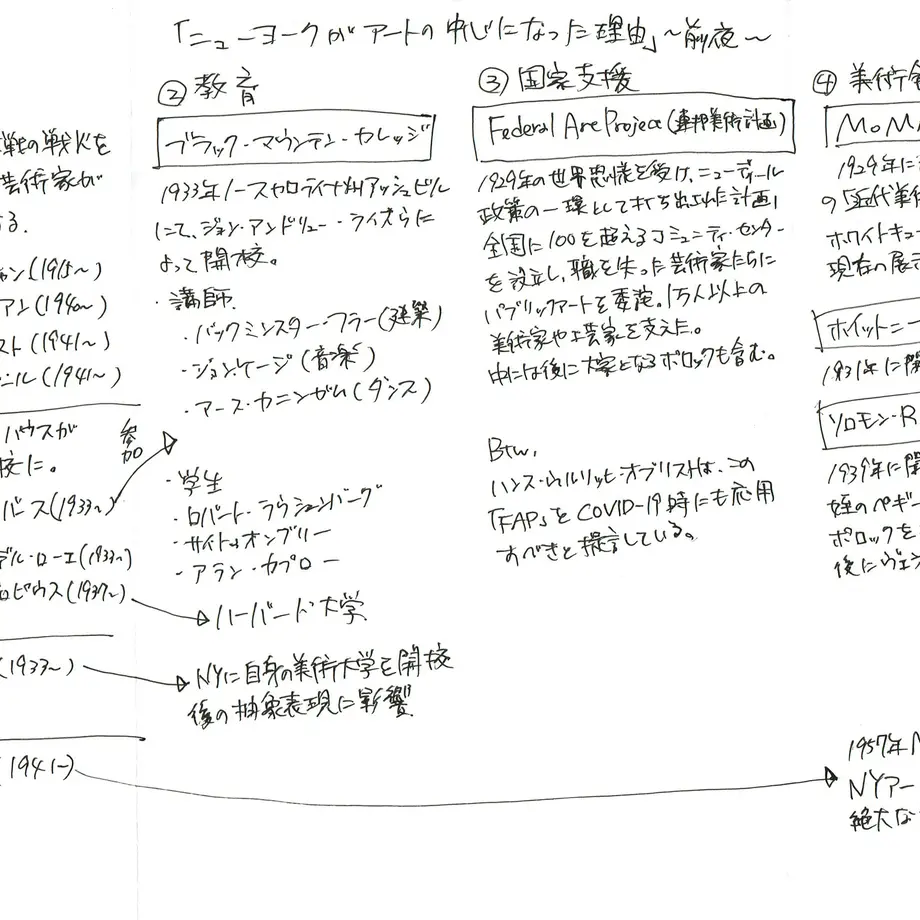 「ニューヨークがアートの中心になった理由」〜前夜〜
戦の戦火を
芸術家が
る.
ャン(1915〜)
アン(1940〜)
スト(1941〜)
ニル(1941〜)
バウスが
校に。
参加
バース(1933〜)
デル・ローエ(1933〜)
ロピウス(1937〜)
(1933〜)
(1941-)
② 教育
ブラック・マウンテン・カレッジ
1933年ノースキャロライナ州アッシュビル
にて、ジョン・アンドリュー・ライズらに
よって開校。
・講師
・バックミンスター・フラー(建築)
・ジョンケージ(音楽)
・マース・カニンガム(ダンス)
・学生
・ロバート・ラウシェンバーグ
・サイトゥオンブリー
・アラン・カプロー
ハーバード大学
NYに自身の美術大学を開校
後の抽象表現に影響
③ 国家支援
Federal Are Project(連邦美術計画)
1929年の世界恐慌を受け、ニューディール
政策の一環として打ち出された計画。
全国に100を超えるコミュニティ・センター
を設立し、職を失った芸術家たちに
パブリックアートを委託。1万人以上の
美術家や工芸家を支えた。
中には後に大家となるポロックも含む。
Btw,
ハンス・ウルリッヒ・オブリストは、この
「FAP」をCOVID-19時にも応用
すべきと提言している。
④ 美術
MoM
1929年に
の「近代美
ホワイトキュー
現在の展
ホイットニー
1931年に開
ソロモン・R
1939年に開
姪のペギー
ポロックを
後にヴェン
1957年
NYアー
絶大な